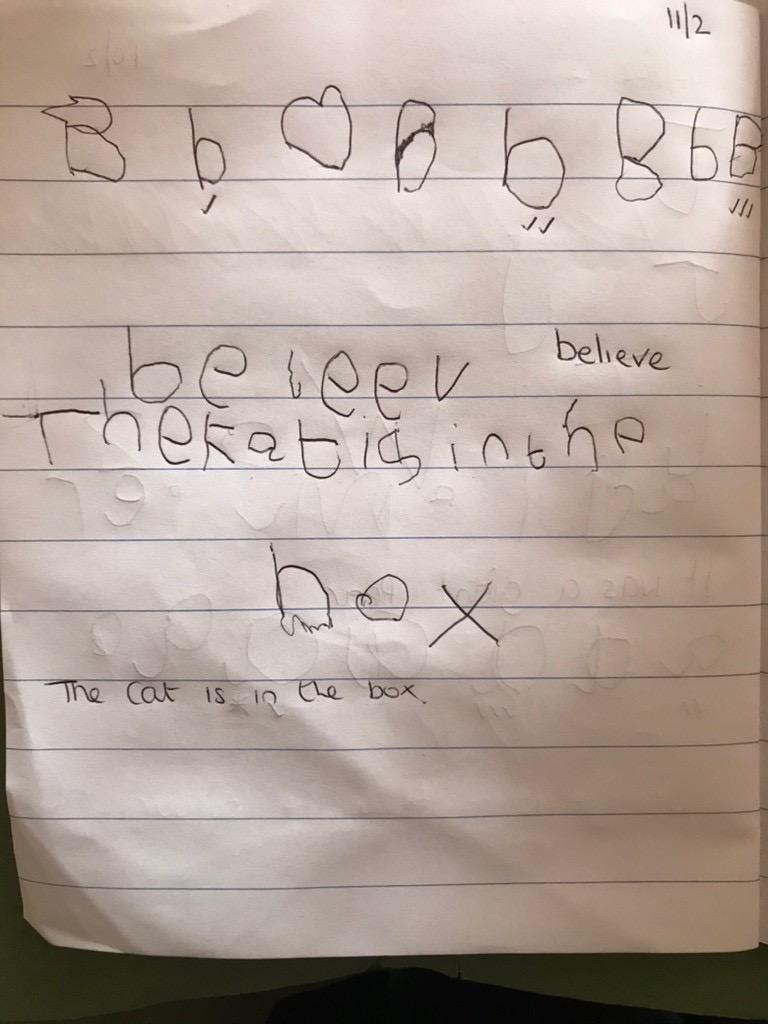 11/2
B b B b B b B
be leev believe
The kat is in the
box
The Cat is in the box.